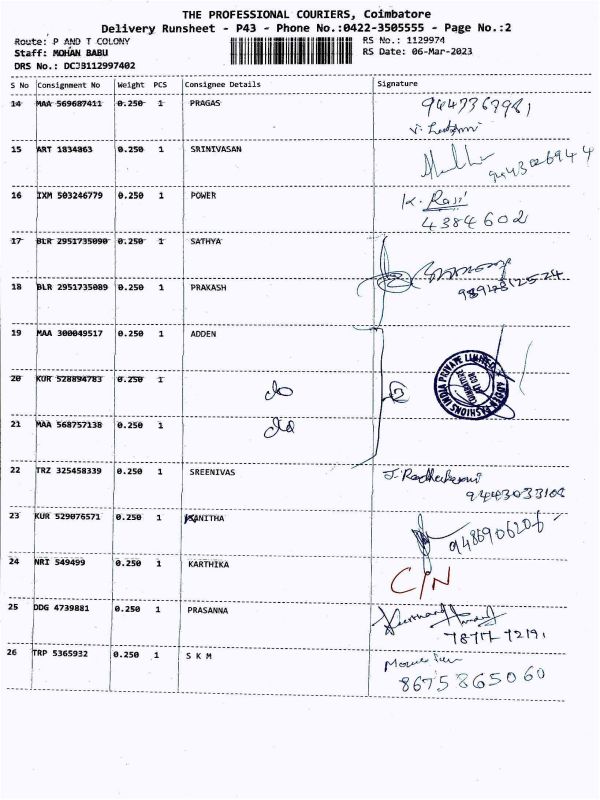 THE PROFESSIONAL COURIERS, Coimbatore
Delivery Runsheet - P43 - Phone No.:0422-3505555 - Page No.:2
Route: P AND T COLONY RS No.: 1129974
Staff: MOHAN BABU RS Date: 06-Mar-2023
DRS No.: DCJB112997402
S No Consignment No Weight PCS Consignee Details Signature
14 MAA 569687411 0.250 1 PRAGAS
15 ART 1834863 0.250 1 SRINIVASAN
9443026944
16 IXM 503246779 0.250 1 POWER K. Raji
4384602
17 BLR 2951735090 0.250 1 SATHYA
18 BLR 2951735089 0.250 1 PRAKASH
19 MAA 300049517 0.250 1 ADDEN
20 KUR 528894783 0.250 1
21 MAA 568757138 0.250 1
ADDEN FASHIONS INDIA PRIVATE LIMITED
22 TRZ 325458339 0.250 1 SREENIVAS
23 KUR 529076571 0.250 1 VANITHA
9486906206
24 NRI 549499 0.250 1 KARTHIKA
C/N
25 DDG 4739881 0.250 1 PRASANNA
26 TRP 5365932 0.250 1 S K M
8675865060